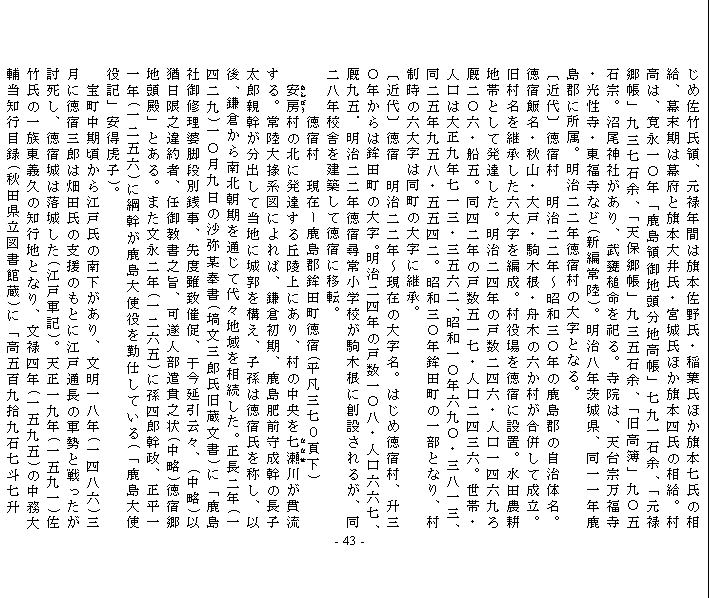 じめ佐竹氏領、元禄年間は旗本佐野氏・稲葉氏ほか旗本七氏の相
給、幕末期は幕府と旗本大井氏・宮城氏ほか旗本四氏の相給。村
高は、寛永一〇年「鹿島領御地頭分地高帳」七九一石余、「元禄
郷帳」九三七石余、「天保郷帳」九三五石余、「旧高簿」九〇五
石宗。沼尾神社があり、武甕槌命を祀る。寺院は、天台宗万福寺
・光性寺・東福寺など（新編常陸）。明治八年茨城県、同一一年鹿
島郡に所属。明治二二年徳宿村の大字となる。
〔近代〕徳宿村　明治二二年〜昭和三〇年の鹿島郡の自治体名。
徳宿飯名・秋山・大戸・駒木根・舟木の六か村が合併して成立。
旧村名を継承した六大字を編成。村役場を徳宿に設置。水田農耕
地帯として発達した。明治二四年の戸数二四六・人口一四六九ろ
厩二〇六・船五。同四二年の戸数五一七・人口二四三六。世帯・
人口は大正九年七一三・三五六二、昭和一〇年六九〇・三八一三、
同二五年九五八・五五四二。昭和三〇年鉾田町の一部となり、村
制時の六大字は同町の大字に継承。
〔近代〕徳宿　明治二二年〜現在の大字名。はじめ徳宿村、升三
〇年からは鉾田町の大字。明治二四年の戸数一〇八・人口六六七、
厩九五。明治二二年徳宿尋常小学校が駒木根に創設されるが、同
二八年校舎を建築して徳宿に移転。
徳宿村　現在ー鹿島郡鉾田町徳宿（平凡三七〇頁下）
安房村の北に発達する丘陵上にあり、村の中央を七瀬川が貫流
する。常陸大掾系図によれば、鎌倉初期、鹿島肥前守成幹の長子
太郎親幹が分出して当地に城郭を構え、子孫は徳宿氏を称し、以
後、鎌倉から南北朝期を通じて代々地域を相続した。正長二年（一
四二九）一〇月九日の沙弥某奉書（塙文三郎氏旧蔵文書）に「鹿島
社御修理婆脚段別銭事、先度雖致催促、于今延引云々、（中略）以
猶日限之違約者、任御教書之旨、可遂入部遣責之状（中略）徳宿郷
地頭殿」とある。また文永二年（一二六五）に孫四郎幹政、正平一
一年（一三五六）に綱幹が鹿島大使役を勤仕している（「鹿島大使
役記」安得虎子）。
宝町中期頃から江戸氏の南下があり、文明一八年（一四八六）三
月に徳宿三郎は畑田氏の支援のもとに江戸通長の軍勢と戦ったが
討死し、徳宿城は落城した（江戸軍記）。天正一九年（一五九一）佐
竹氏の一族東義久の知行地となり、文禄四年（一五九五）の中務大
輔当知行目録（秋田県立図書館蔵）に「高五百九拾九石七斗七升
- 43 -